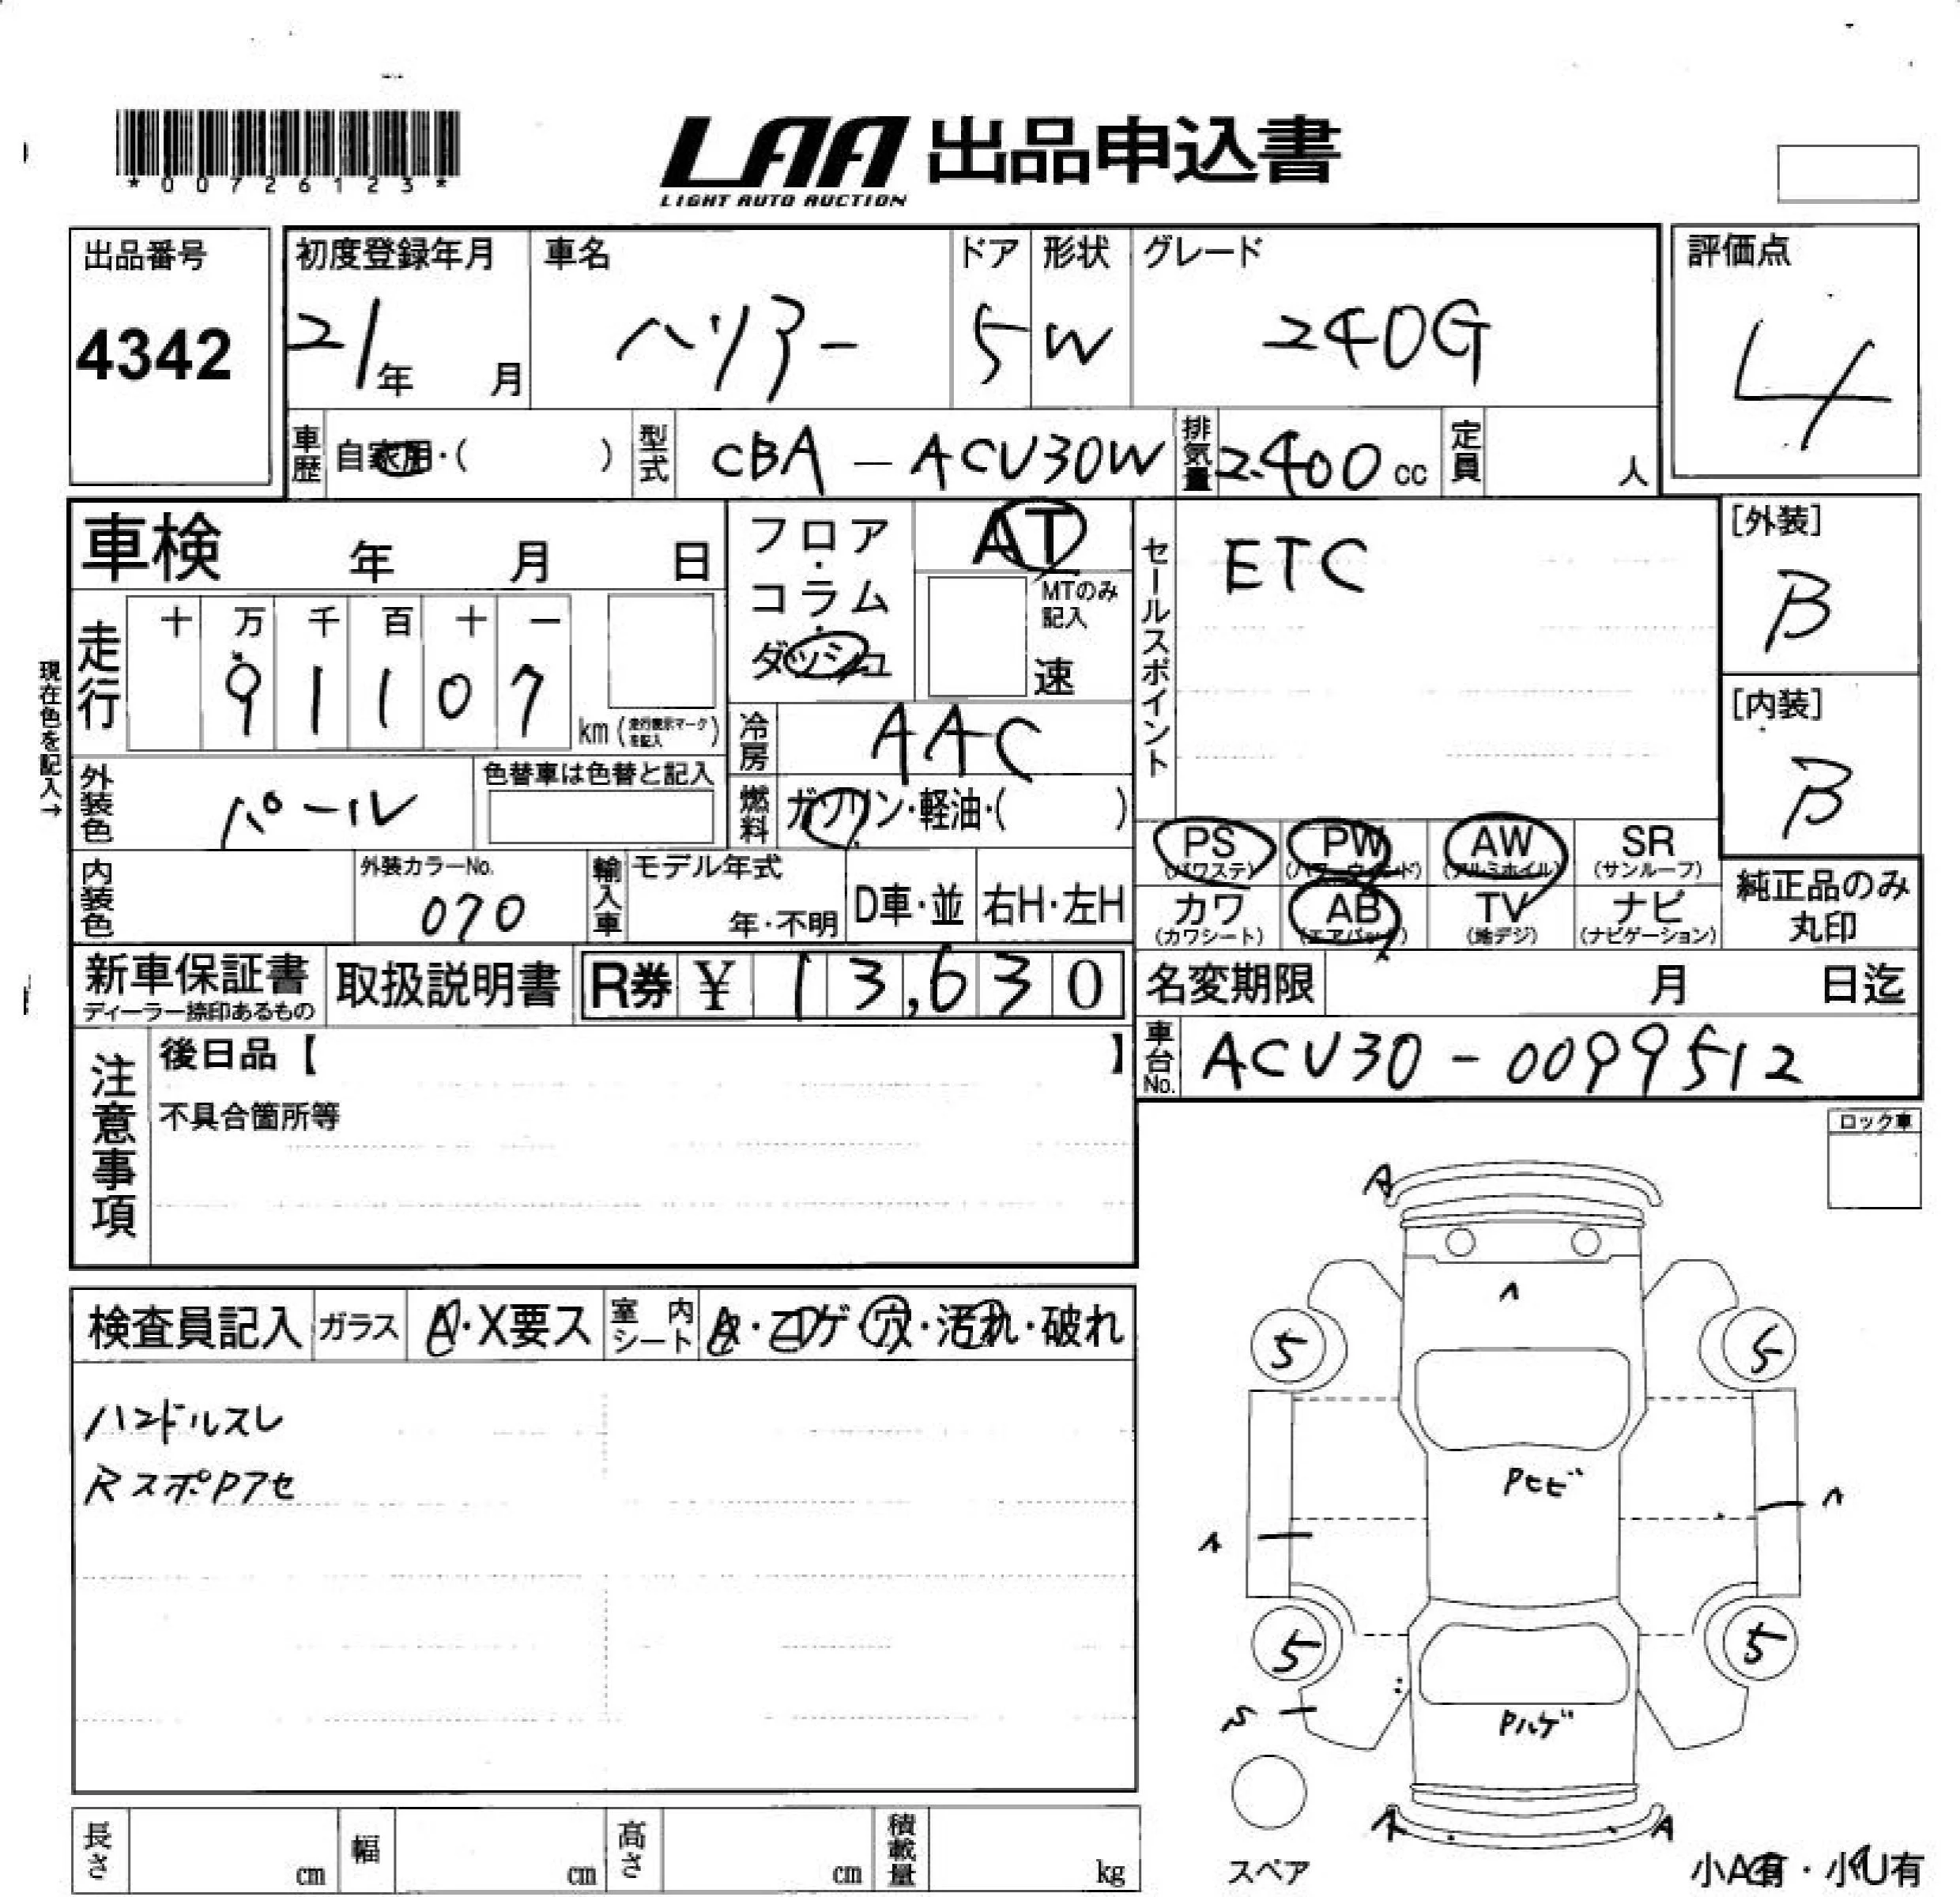 *00726123*
LAA 出品申込書
LIGHT AUTO AUCTION
出品番号
4342
初度登録年月
21年 月
車名
ハリアー
ドア
5
形状
W
グレード
240G
評価点
4
車歴
自家用・( )
型式
CBA-ACU30W
排気量
2400cc
定員
人
車検 年 月 日
フロア・コラム・ダッシュ
AT
MTのみ記入
速
セールスポイント
ETC
[外装]
B
[内装]
B
現在色を記入→
走行
十 万 千 百 十 一
9 1 1 0 7
km (走行表示マークを記入)
冷房
AAC
外装色
パール
色替車は色替と記入
燃料
ガソリン・軽油・( )
PS
(パワステ)
PW
(パワーウィンド)
AW
(アルミホイル)
SR
(サンルーフ)
カワ
(カワシート)
AB
(エアバッグ)
TV
(地デジ)
ナビ
(ナビゲーション)
純正品のみ
丸印
内装色
外装カラーNo.
070
輸入車
モデル年式
年・不明
D車・並
右H・左H
新車保証書
ディーラー捺印あるもの
取扱説明書
R券 ¥ 13,630
名変期限 月 日迄
車台No.
ACU30-0099512
注意事項
後日品【 】
不具合箇所等
ロック車
検査員記入
ガラス
A・X要ス
室内シート
A・コゲ・穴・汚れ・破れ
ハンドルスレ
RスポPアセ
A
^
5
5
Pヒビ
^
^
5
5
S
Pハゲ
A
A
スペア
小A有・小U有
長さ
cm
幅
cm
高さ
cm
積載量
kg